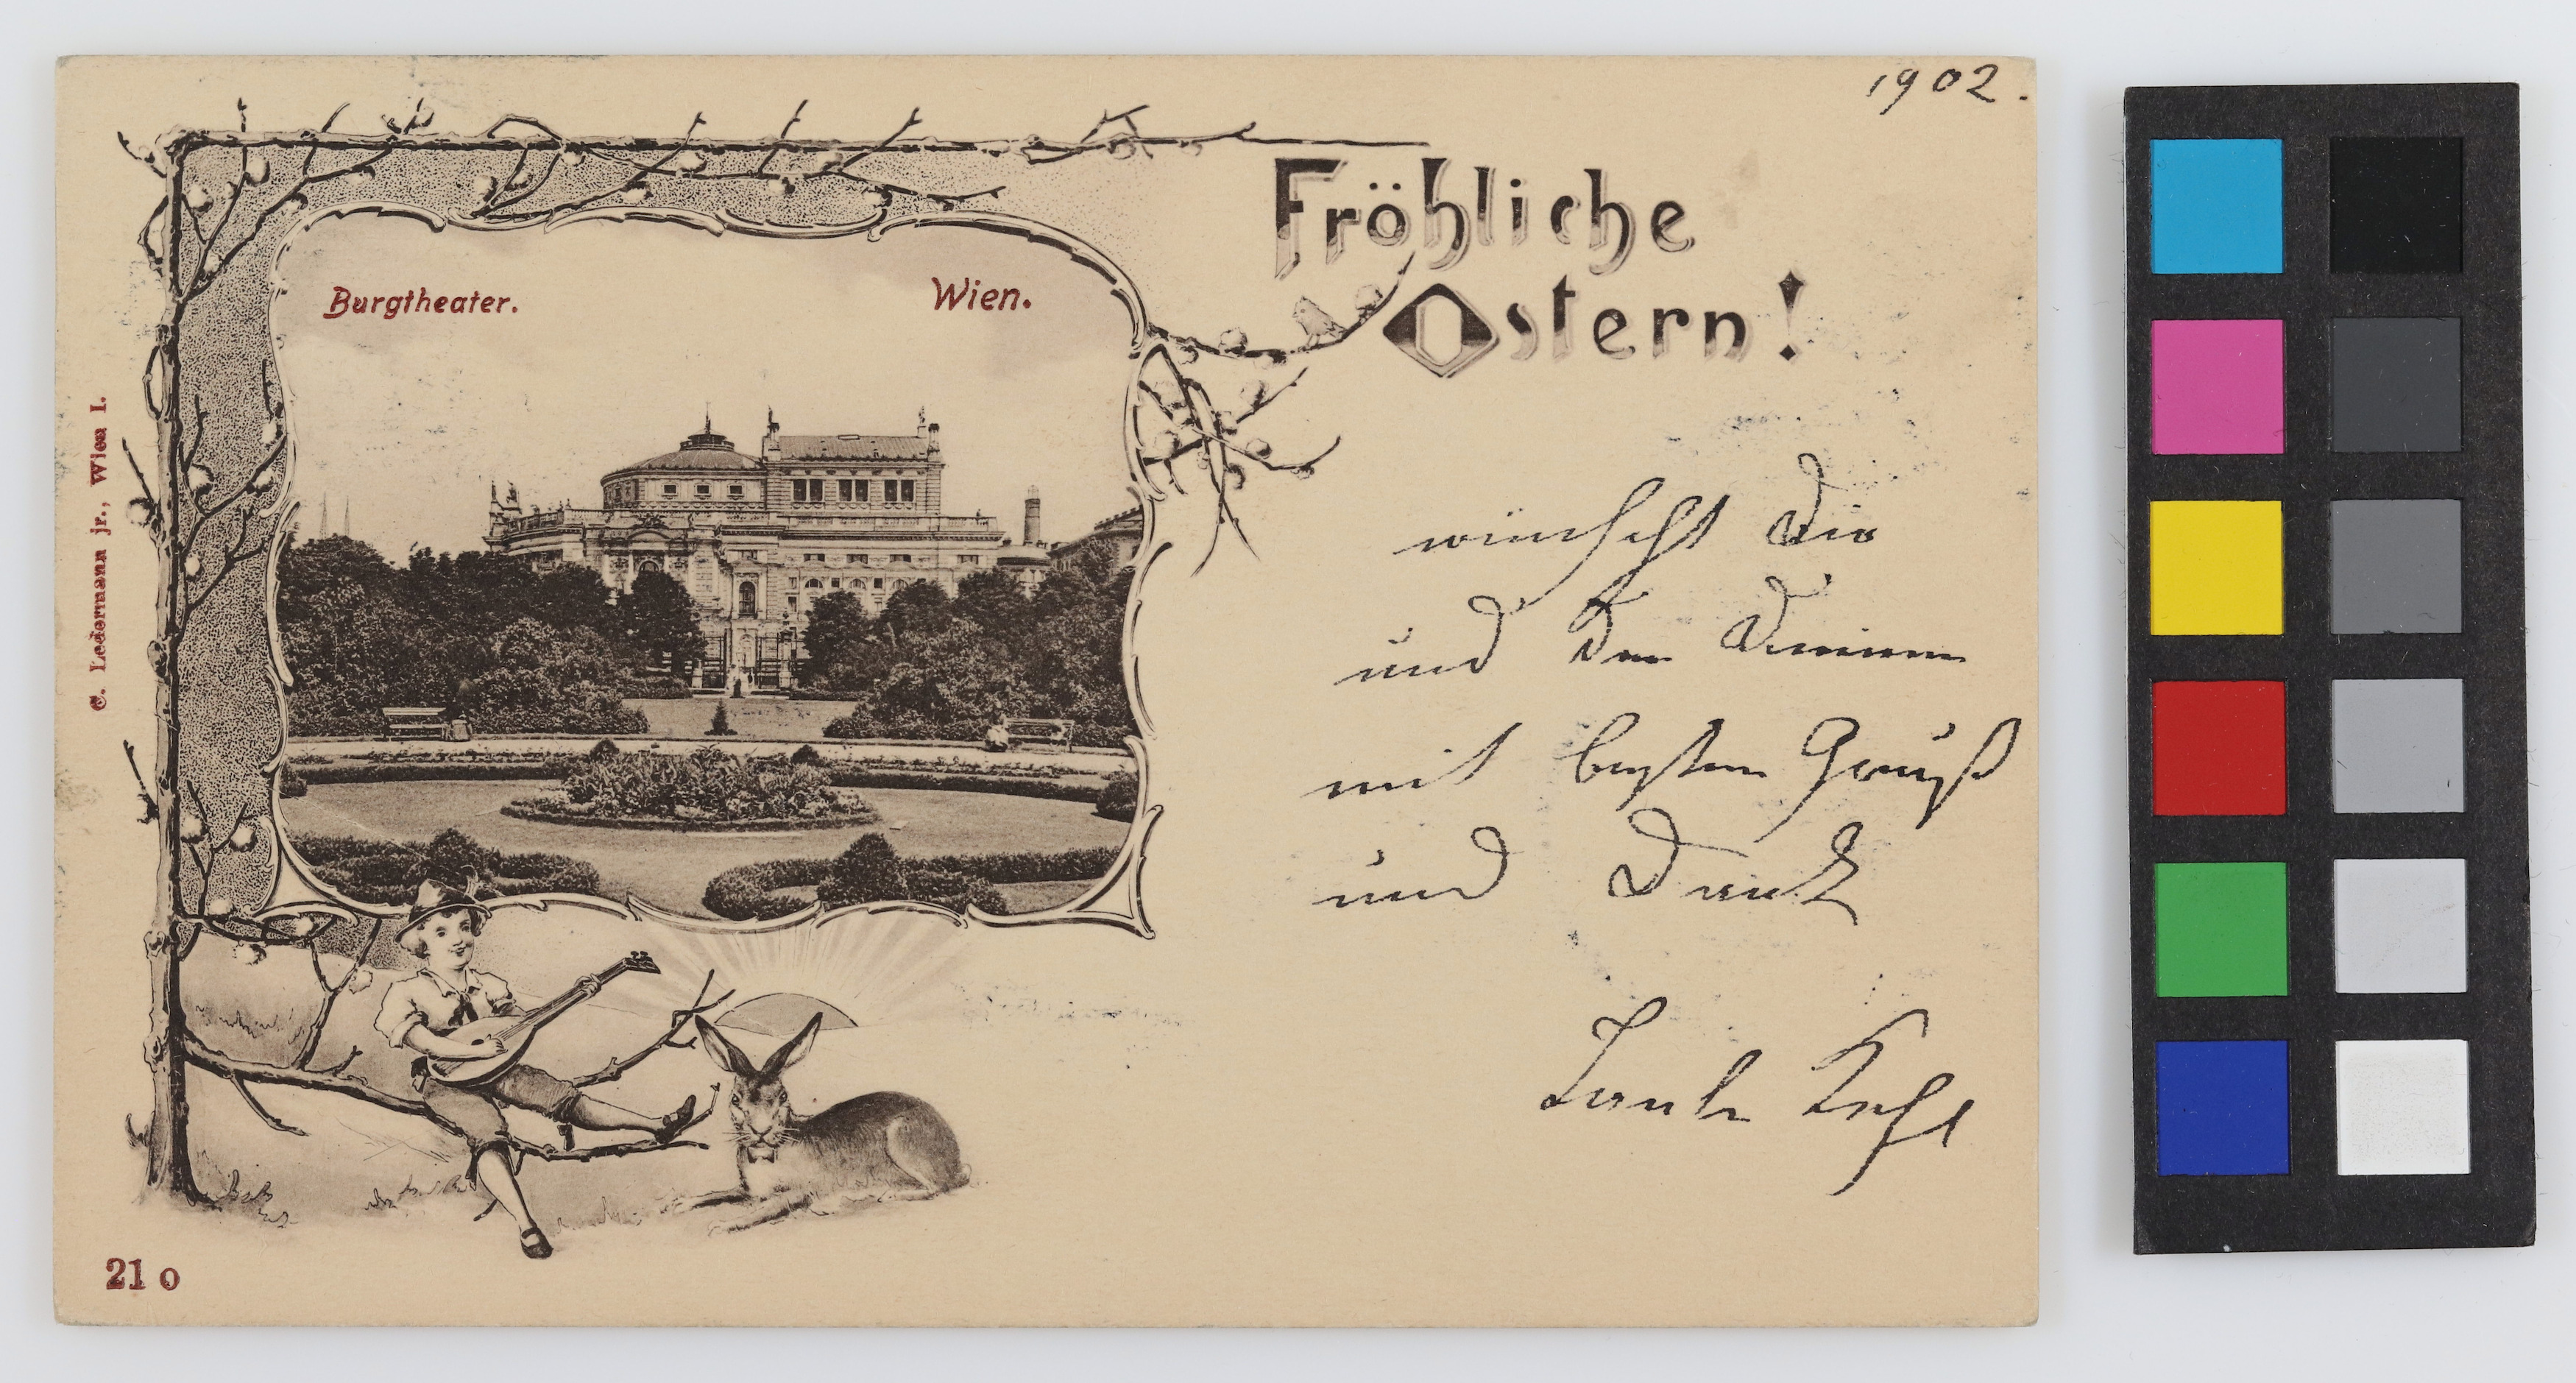 1902.
Fröhliche
Ostern!
Burgtheater.
Wien.
C. Ledermann jr., Wien I.
wünscht Dir
und den Deinen
mit bestem Gruß
und Dank
21 o